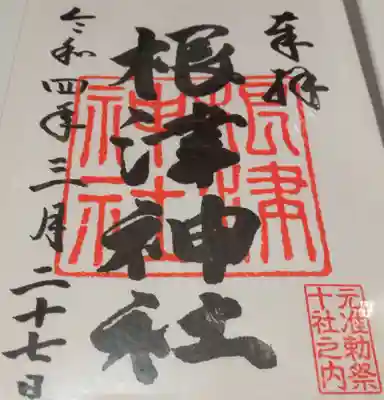 奉拝
根津神社
根津神社
元准勅祭
十社之内
令和四年三月二十七日